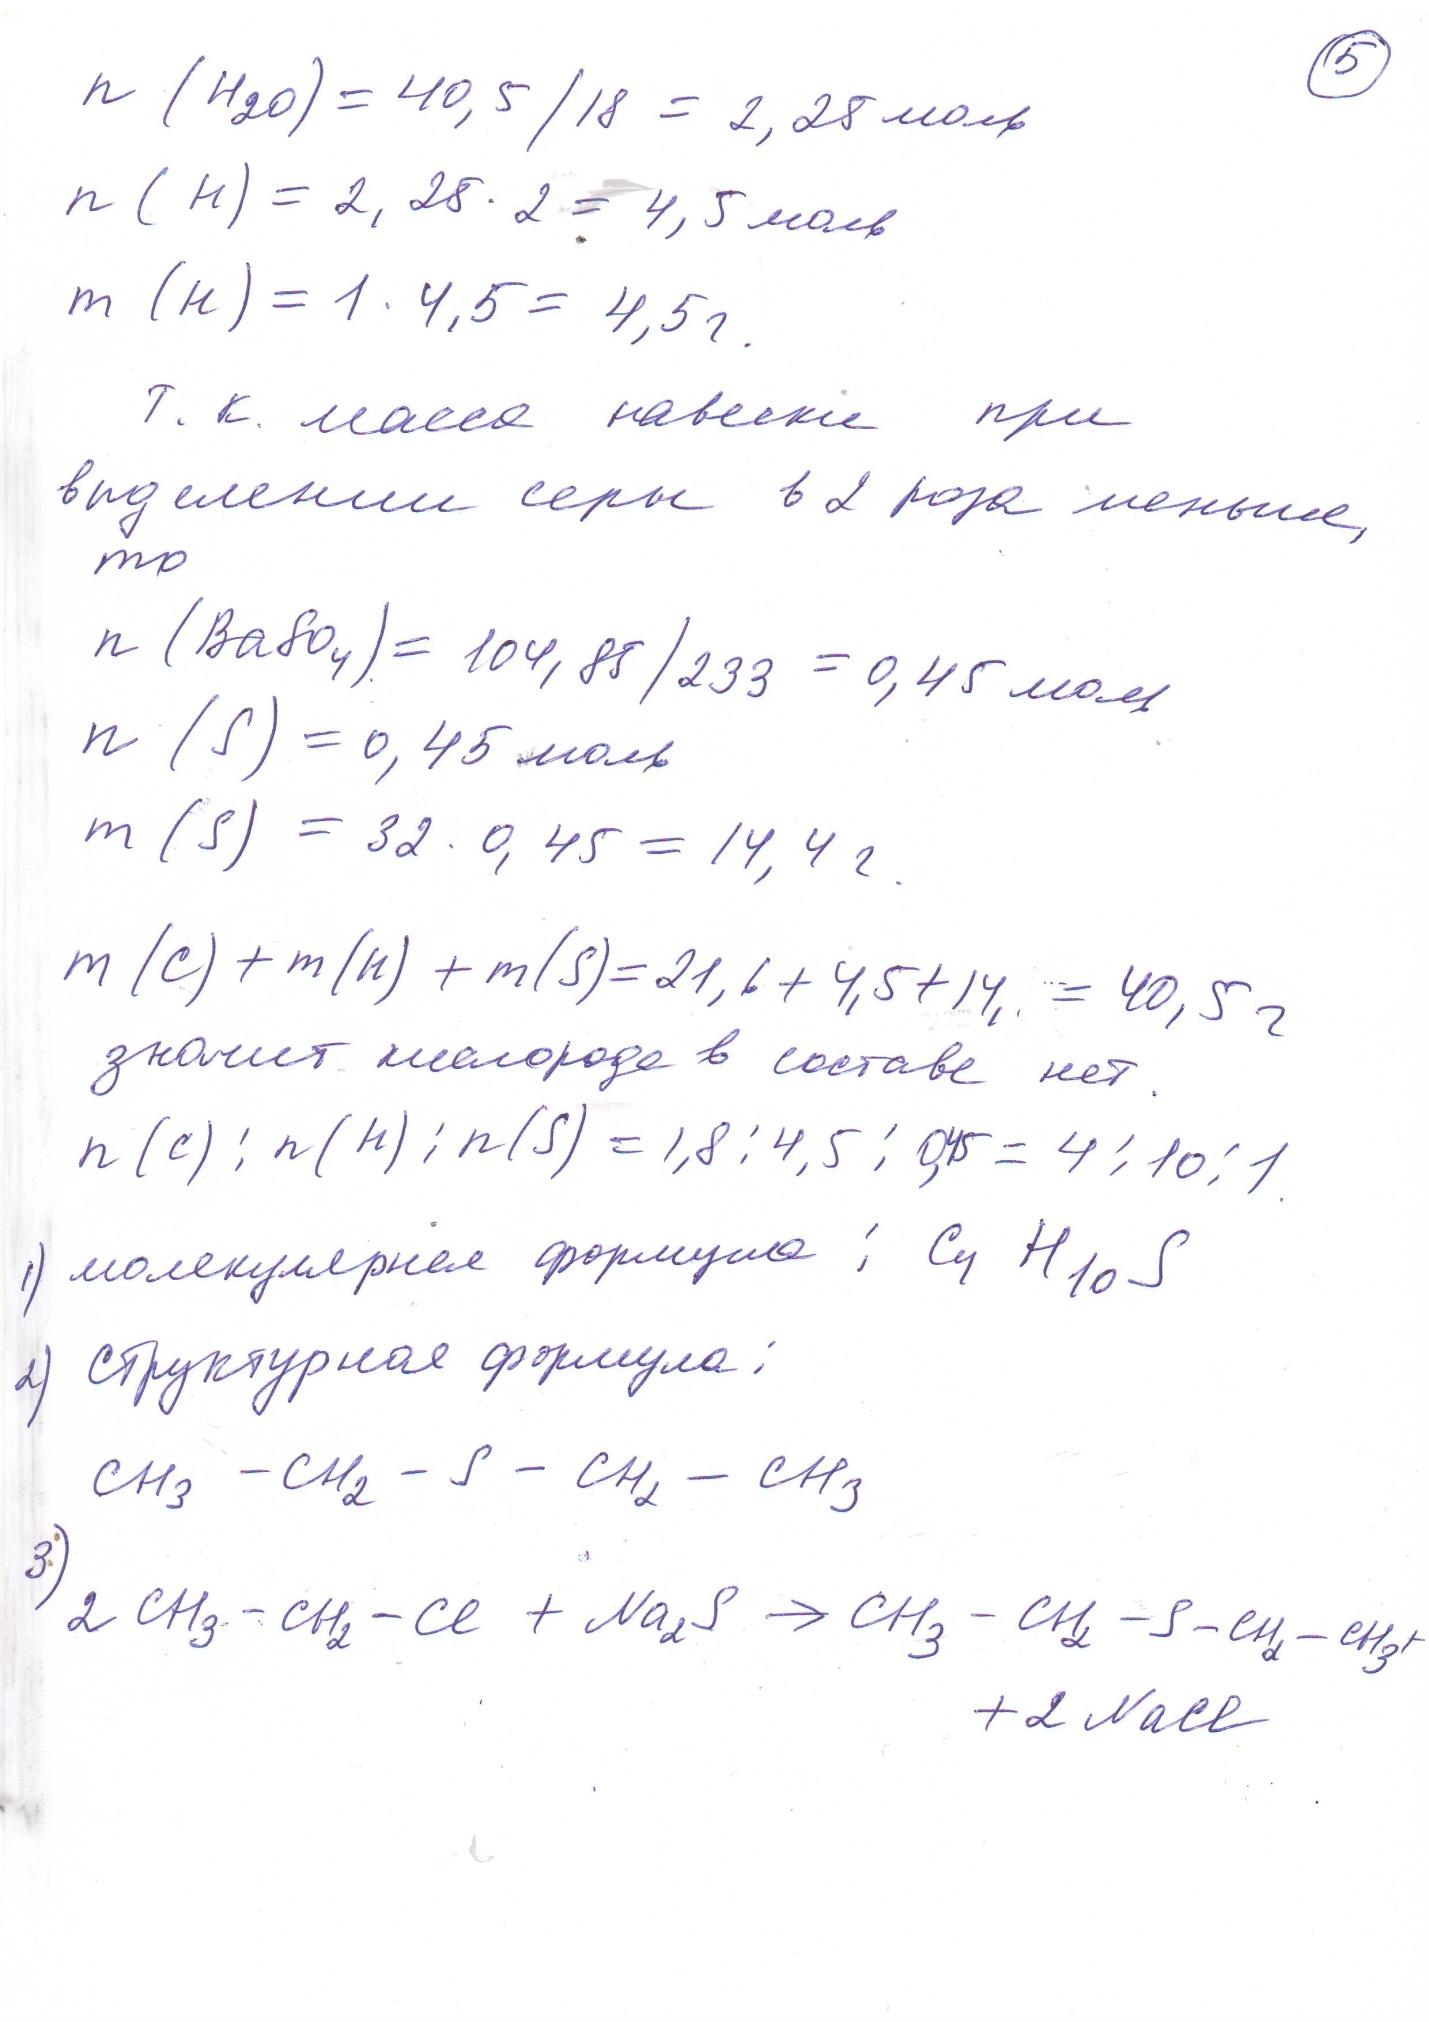 5
n (H2O) = 40,5 / 18 = 2,25 моль
n (H) = 2,25 · 2 = 4,5 моль
m (H) = 1 · 4,5 = 4,5 г.
Т.к. масса навески при
выделении серы в 2 раза меньше,
то
n (BaSO4) = 104,85 / 233 = 0,45 моль
n (S) = 0,45 моль
m (S) = 32 · 0,45 = 14,4 г.
m (C) + m (H) + m (S) = 21,6 + 4,5 + 14, = 40,5 г
значит кислорода в составе нет.
n (C) : n (H) : n (S) = 1,8 : 4,5 : 0,45 = 4 : 10 : 1.
1) молекулярная формула : C4 H10 S
2) структурная формула :
CH3 – CH2 – S – CH2 – CH3
3)
2 CH3 – CH2 – Cl + Na2S → CH3 – CH2 – S – CH2 – CH3 +
+ 2 NaCl